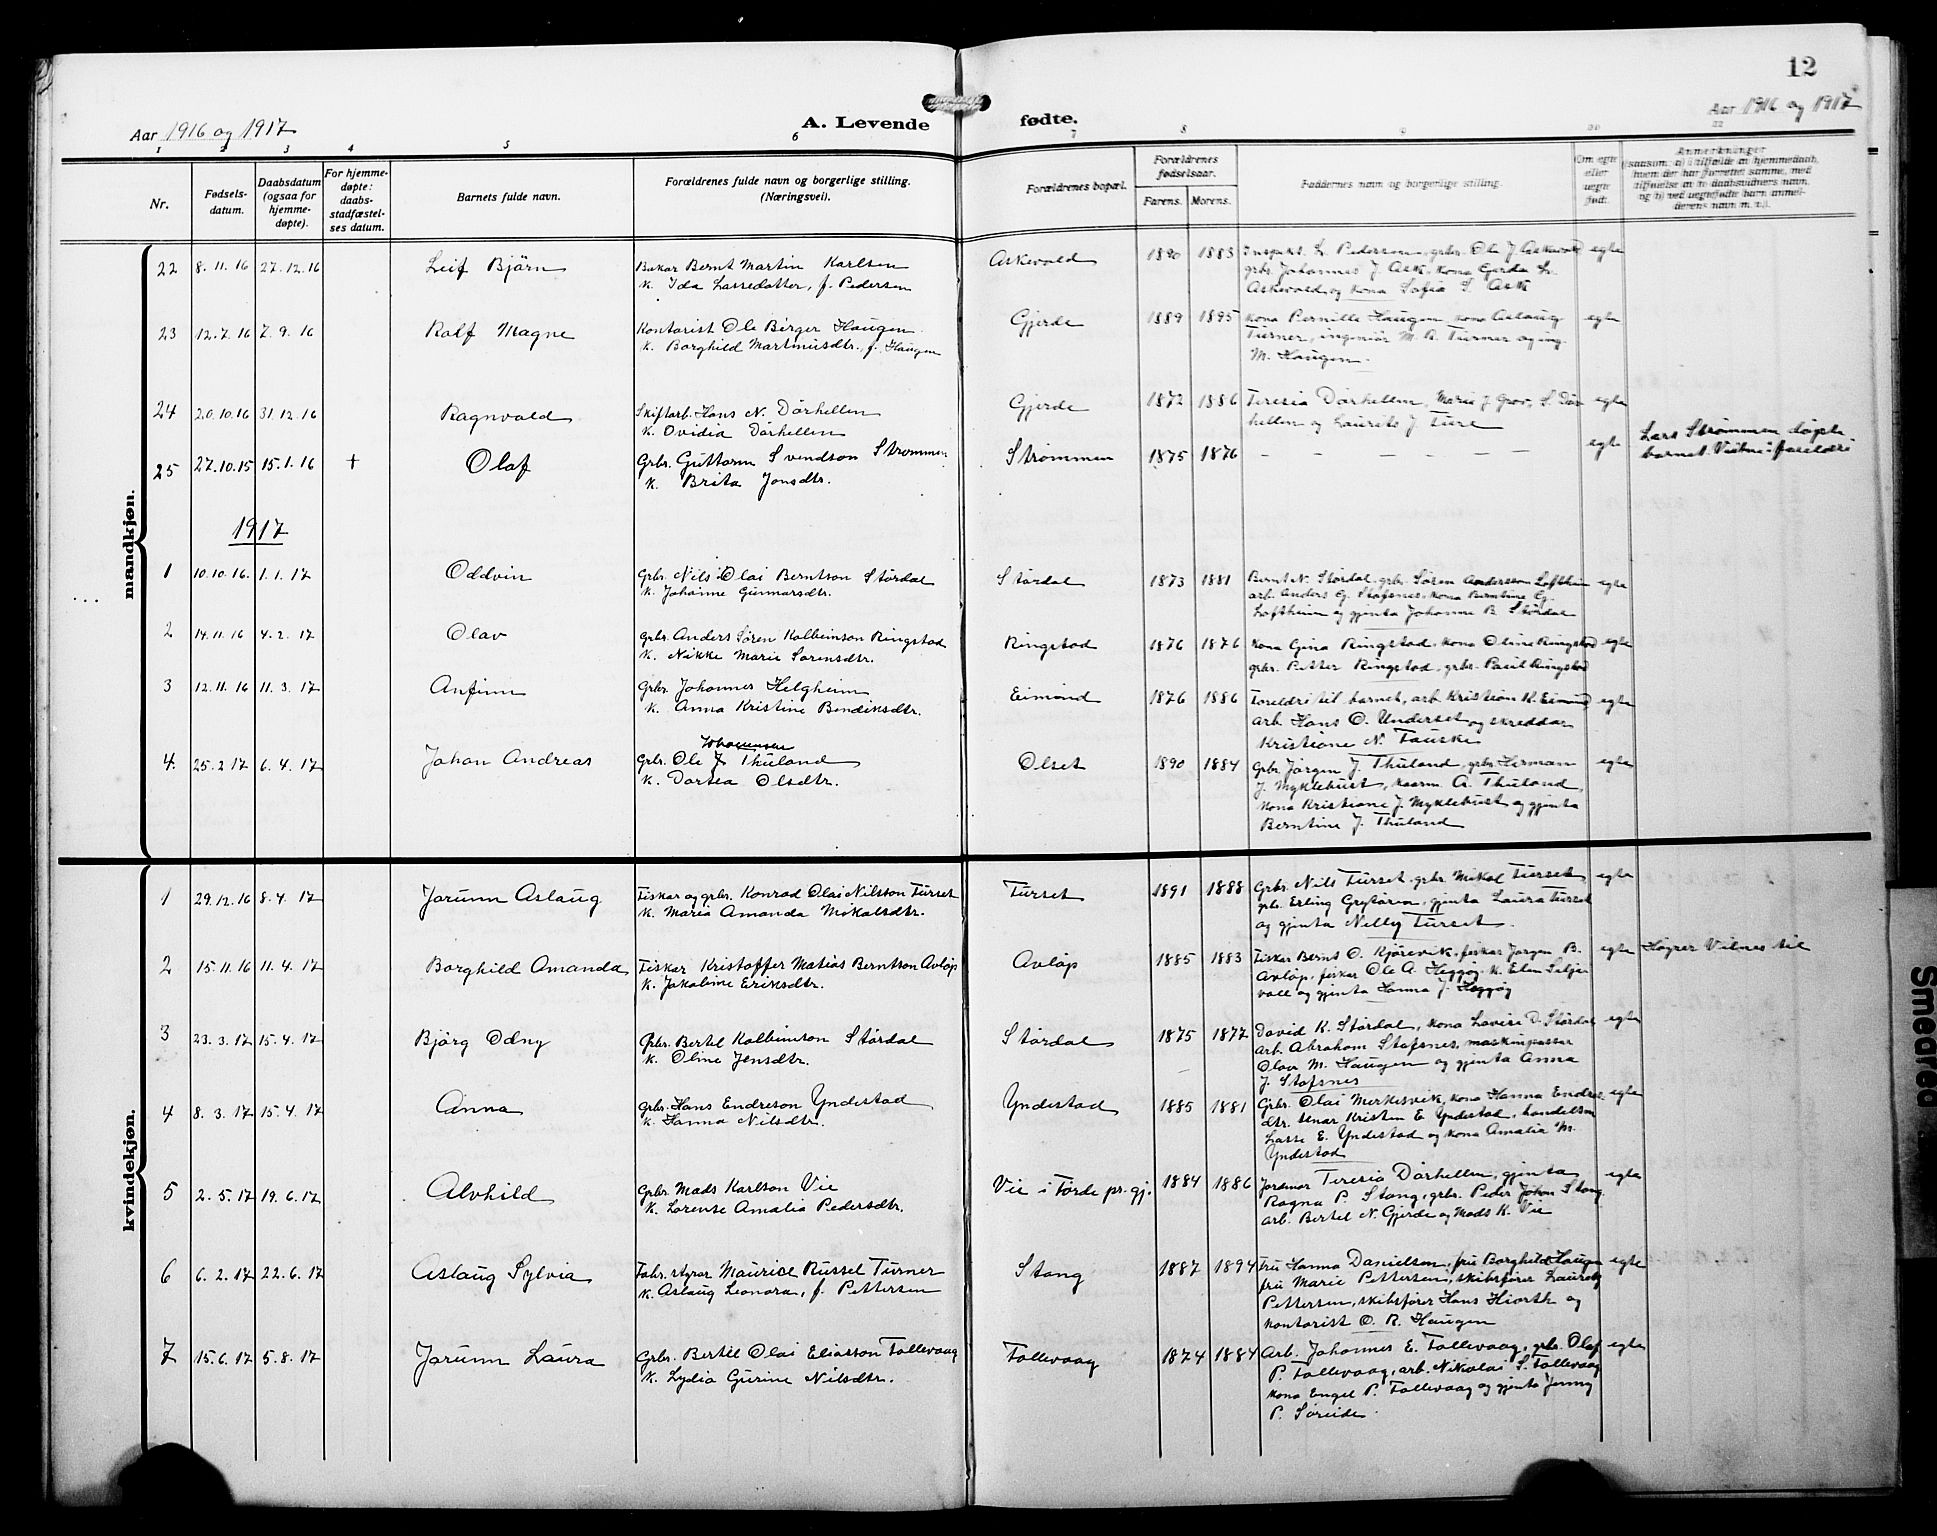 12
Aar 1916 og 1917
A. Levende fødte.
Aar 1916 og 1917
1 2 3 4 5 6 7 8 9 10 11
Nr.
Fødsels-datum.
Daabsdatum (ogsaa for hjemme-døpte).
For hjemme-døpte: daabs-stadfæstel-ses datum.
Barnets fulde navn.
Forældrenes fulde navn og borgerlige stilling. (Næringsvei).
Forældrenes bopæl.
Forældrenes fødselsaar.
Farens. Morens.
Faddernes navn og borgerlige stilling.
Om egte eller uegte født.
Anmerkninger
mandkjøn.
22 8.11.16 27.12.16 Leif Bjørn Bakar Bernt Martin Karlsen Askevold 1890 1883 Inspekt. L. Pedersen, grbr. Ole J Askevold egte
k. Ida Lassedatter, f. Pedersen grbr. Johannes J. Ask, kona Gjerda L.
Askevold og kona Sofia S. Ask
23 12.7.16 7.9.16 Rolf Magne Kontorist Ole Birger Haugen Gjerde 1889 1895 Kona Pernille Haugen, kona Aslaug egte
k. Borghild Martinusdtr. f. Haugen Turner, ingeniør M. R. Turner og ing.
M. Haugen.
24 20.10.16 31.12.16 Ragnvald Skiftarb. Hans N. Dørhellen Gjerde 1872 1886 Teresia Dørhellen, Marie J Grov, S. Dør egte
k. Ovidia Dørhellen hellen og Laurits J Ture
25 27.10.15 15.1.16 + Olaf Grbr. Guttorm Svendson Strømmen Strømmen 1875 1876 – – – – – – egte Lars Strømmen døpte
k. Brita Jonsdtr. barnet. Vitne: foreldri
1917
1 10.10.16. 1.1.17 Oddvin Grbr. Nils Olai Berntson Størdal Størdal 1873 1881 Bernt N. Størdal, grbr. Søren Andersson Loftheim egte
k. Johanne Gunnarsdtr. arb. Anders G. Stafsnes, kona Berntine G.
Loftheim og gjenta Johanne B. Størdal
2 14.11.16 4.2.17 Olav grbr. Anders Søren Kolbeinson Ringstad Ringstad 1876 1876 Kona Gina Ringstad, kona Oline Ringstad egte
k. Nikke Marie Sørensdtr. grbr. Petter Ringstad, grbr. Rasil Ringstad
3 12.11.16 11.3.17 Anfinn Grbr. Johannes Helgheim Eimind 1876 1886 Foreldri til barnet, arb Kristian K. Eimind egte
k. Anna Kristine Bendiksdtr. arb. Hans O. Underset og skreddar
Kristiane N. Tauske
4. 25.2.17 6.4.17 Johan Andreas Johannesen
Grbr. Ole J Thuland Olset 1890 1884 Grbr Jørgen J. Thuland, grbr. Herman egte
k. Dortea Olsdtr. J. Myklebust, kaarm A. Thuland,
kona Kristiane J. Myklebust og gjenta
Berntine J. Thuland
kvindekjøn.
1 29.12.16 8.4.17 Jorunn Aslaug Fiskar og grbr. Konrad Olai Nilsson Turset Turset 1891 1888 Grbr. Nils Turset, grbr. Mikal Turset egte
k. Maria Amanda Mikalsdtr. grb. Erling Grytøren, gjenta Laura Turset
og gjenta Nelly Turset.
2 15.11.16 11.4.17 Borghild Amanda Fiskar Kristoffer Matias Berntson Avløp Avløp 1885 1883 Fiskar Bernt O. Kjørevik, fiskar Jørgen B. egte Høyrer Vilnes til
k. Jakobine Eriksdtr. Avløp, fiskar Ole A. Heggøy, k. Elen Selje
voll og gjenta Hanna J. Heggøy
3 23.3.17 15.4.17 Bjørg Odny Grbr. Bertel Kolbeinson Størdal Størdal 1875 1877 David K. Størdal, kona Lovise D. Størdal egte
k. Oline Jensdtr. arb. Abraham Stafsnes, maskinpassar
Olav M. Haugen og gjenta Anna
J. Stafsnes
4 8.3.17 15.4.17 Anna grbr. Hans Endreson Yndestad Yndestad 1885 1881 Grbr. Olai Merkesvik, kona Hanna Endres- egte
k. Hanna Nilsdtr. dtr. tenar Kristen E Yndestad, handelsm
Lasse E. Yndestad og kona Amalia M.
Yndestad
5 2.5.17 19.6.17 Alvhild Grbr. Mads Karlson Vie Vie i Førde pr.gj. 1884 1886 Jordmor Teresia Dørhellen, gjenta egte
k. Lorense Amalia Pedersdtr. Ragna P. Stang, grbr. Peder Johan Stang
arb. Bertel N. Gjerde og Mads K. Vie
6 6.2.17 22.6.17 Aslaug Sylvia Fabr. styrar Maurice Russel Turner Stang 1887 1894 Fru Hanna Danielsen, fru Borghild Haugen egte
k. Aslaug Leonora, f. Pettersen fru Marie Pettersen, skibsfører Lauretz
Pettersen, skibsfører Hans Hiorth og
kontorist O. B. Haugen
7 15.6.17 5.8.17 Jorunn Laura Grbr. Bertel Olai Eliasson Follevaag Follevaag 1874 1884 Arb. Johannes E. Follevaag, grbr. Olaf egte
k. Lydia Gurine Nilsdtr. P. Follevaag, arb. Nikolai S. Follevaag
kona Engel P. Follevaag og gjenta Jenny
P. Søreide.
Smeared